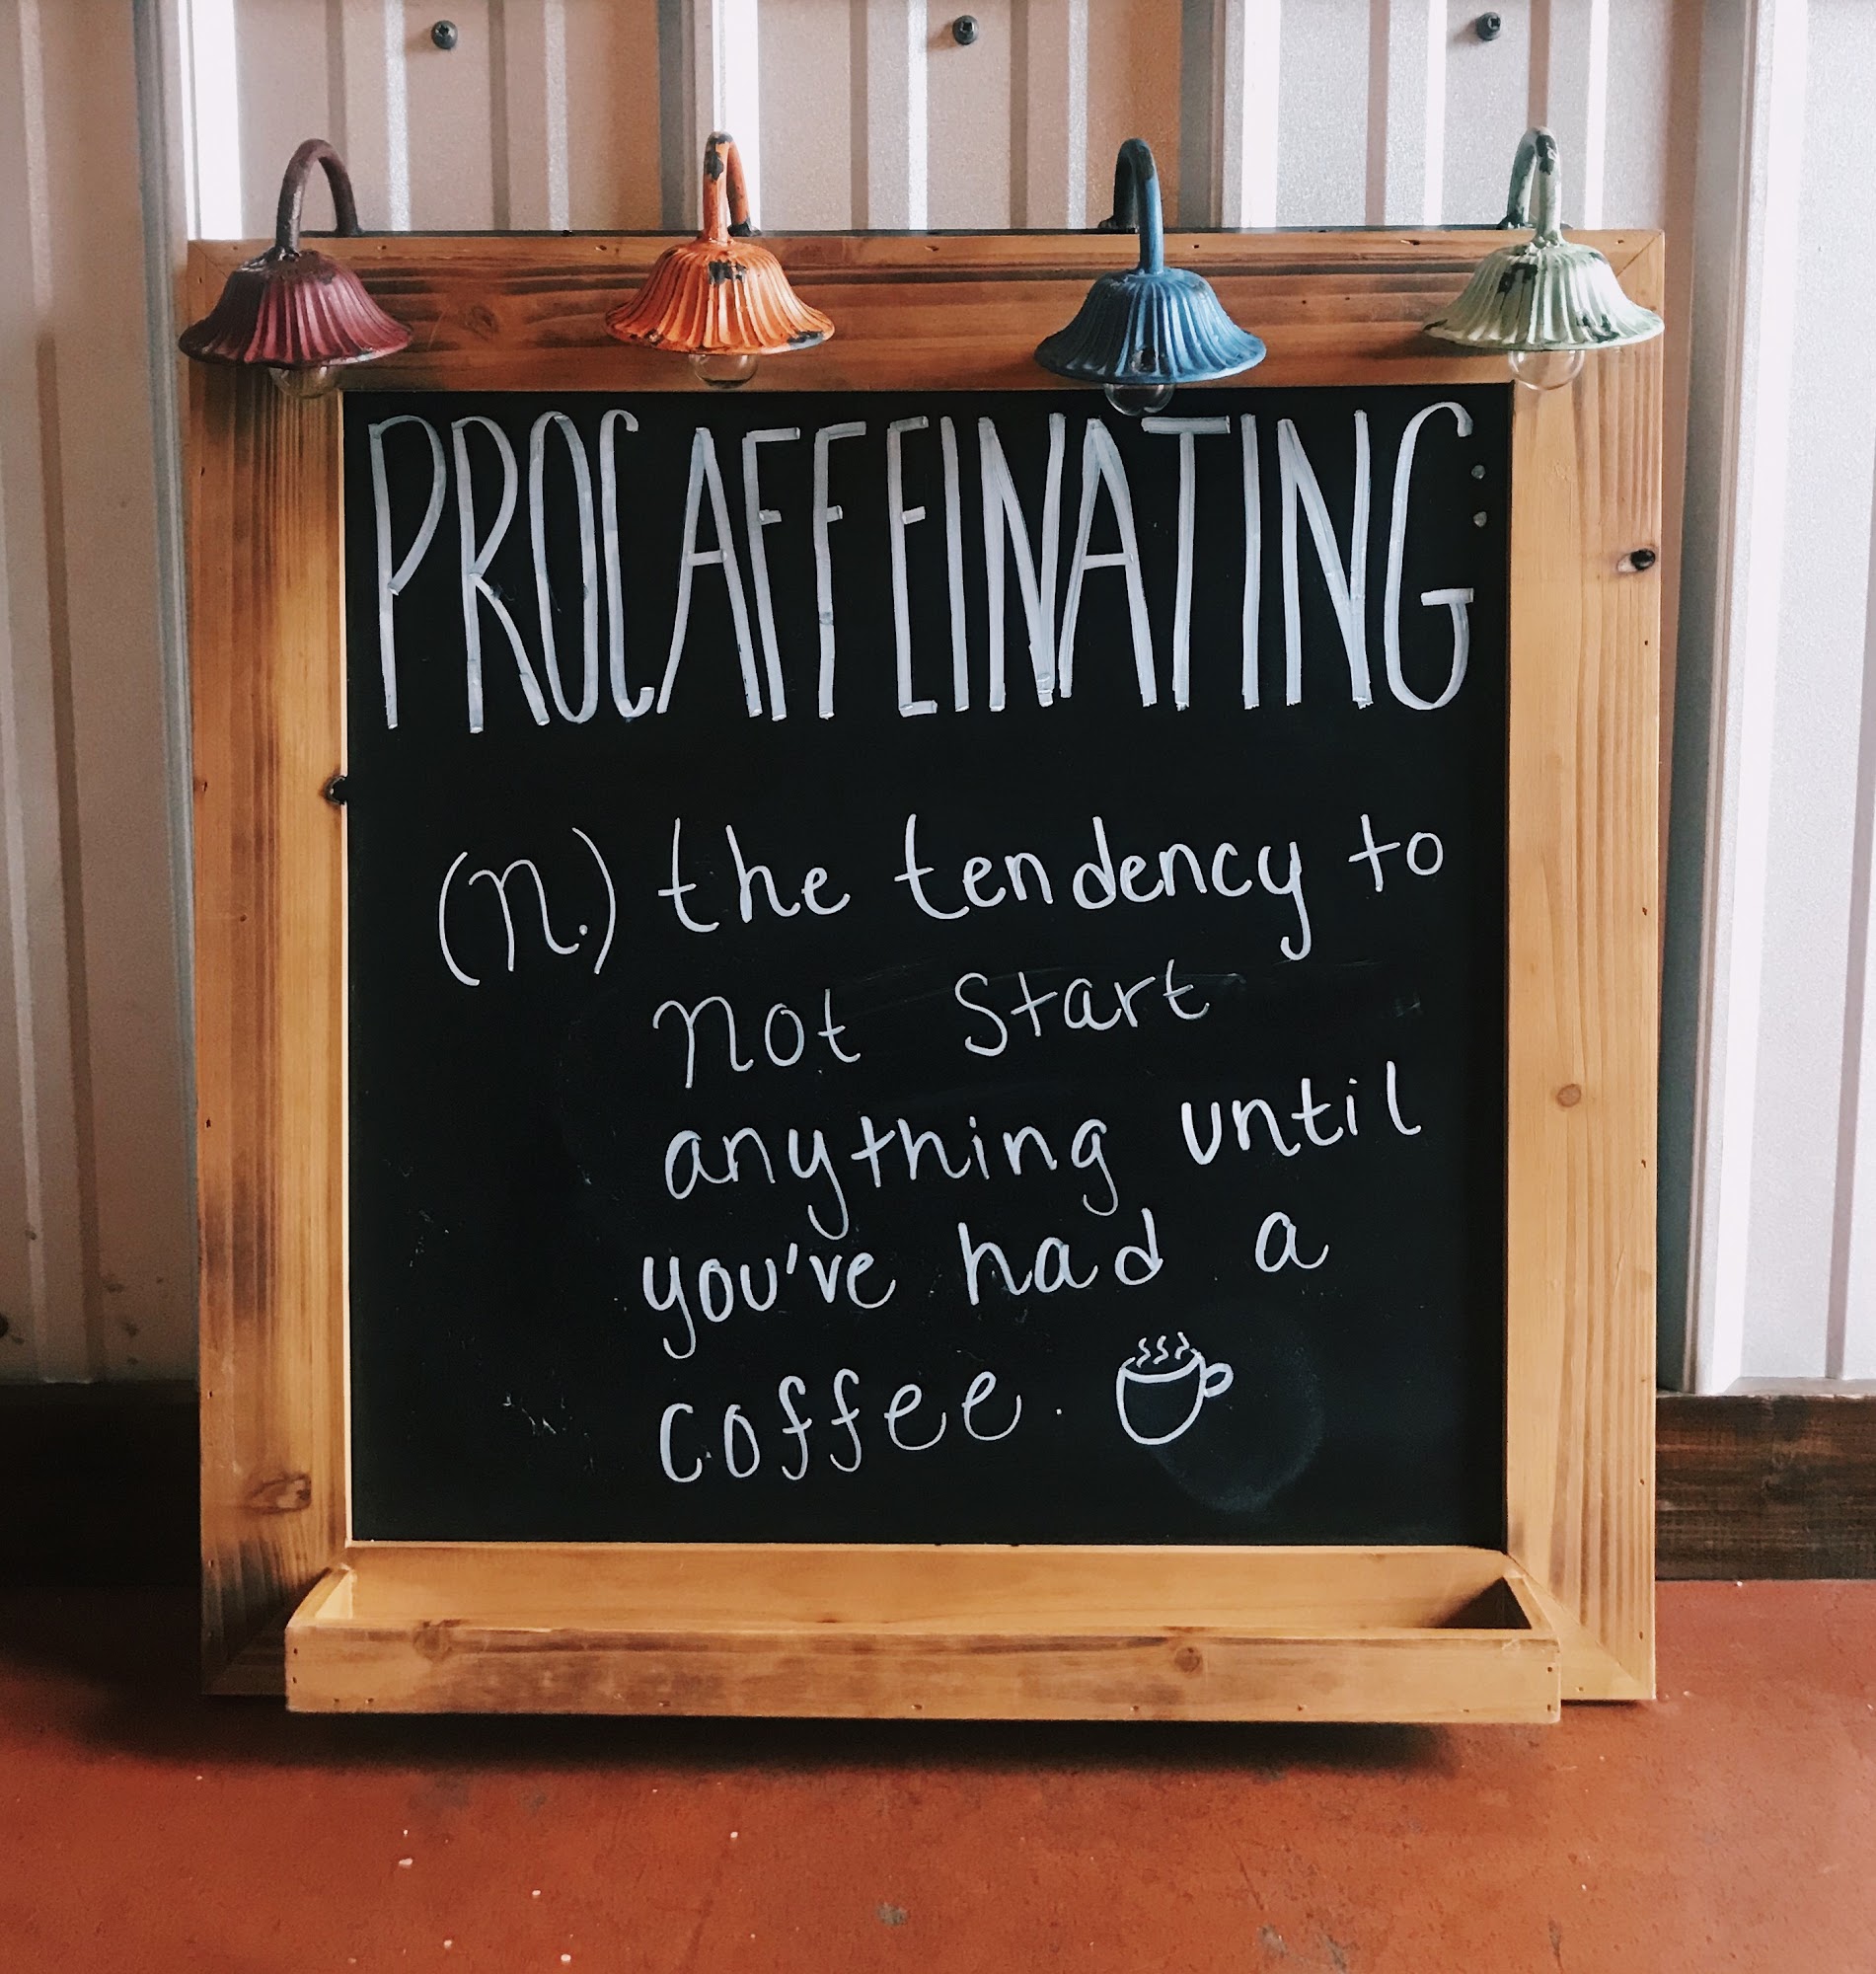 PROCAFFEINATING:
(n.) the tendency to
not start
anything until
you've had a
coffee.